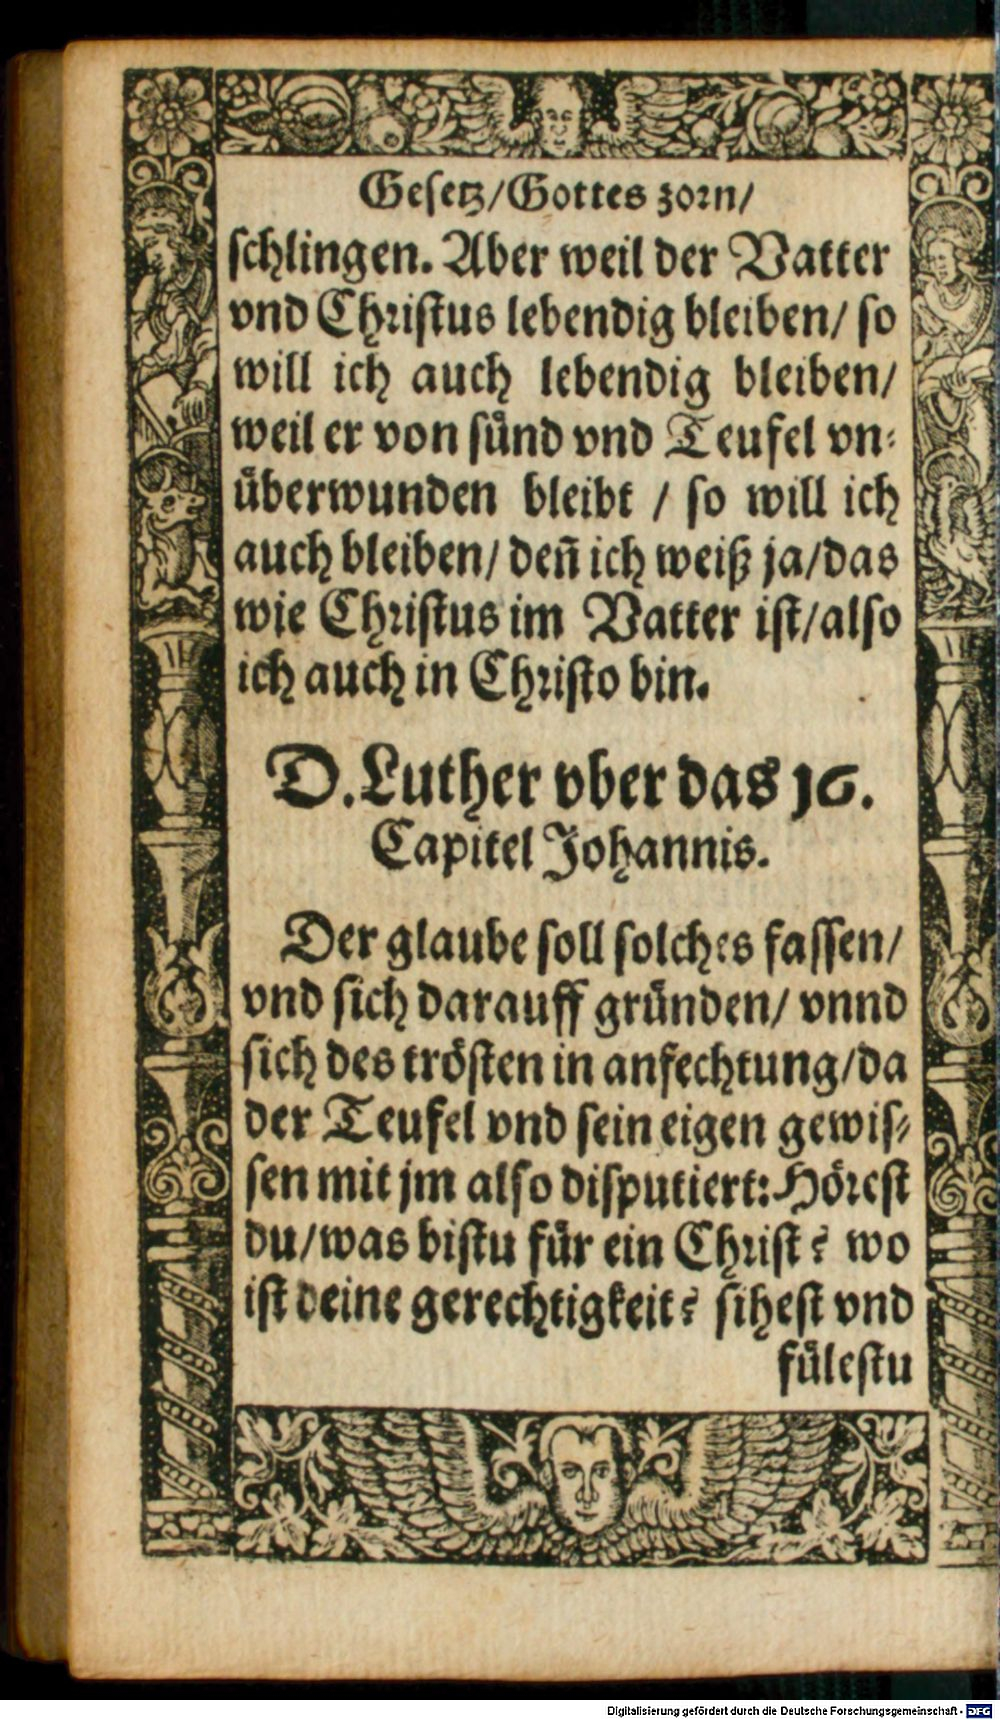 Gesetz/Gottes zorn/
schlingen. Aber weil der Vatter
vnd Christus lebendig bleiben/ so
will ich auch lebendig bleiben/
weil er von sünd vnd Teufel vn-
überwunden bleibt / so will ich
auch bleiben/ deñ ich weiß ja/das
wie Christus im Vatter ist/also
ich auch in Christo bin.
D. Luther vber das 16.
Capitel Johannis.
Der glaube soll solches fassen/
vnd sich darauff gründen/ vnnd
sich des trösten in anfechtung/da
der Teufel vnd sein eigen gewis-
sen mit jm also disputiert: Hörest
du/was bistu für ein Christ? wo
ist deine gerechtigkeit? sihest vnd
fülestu
Digitalisierung gefördert durch die Deutsche Forschungsgemeinschaft - DFG